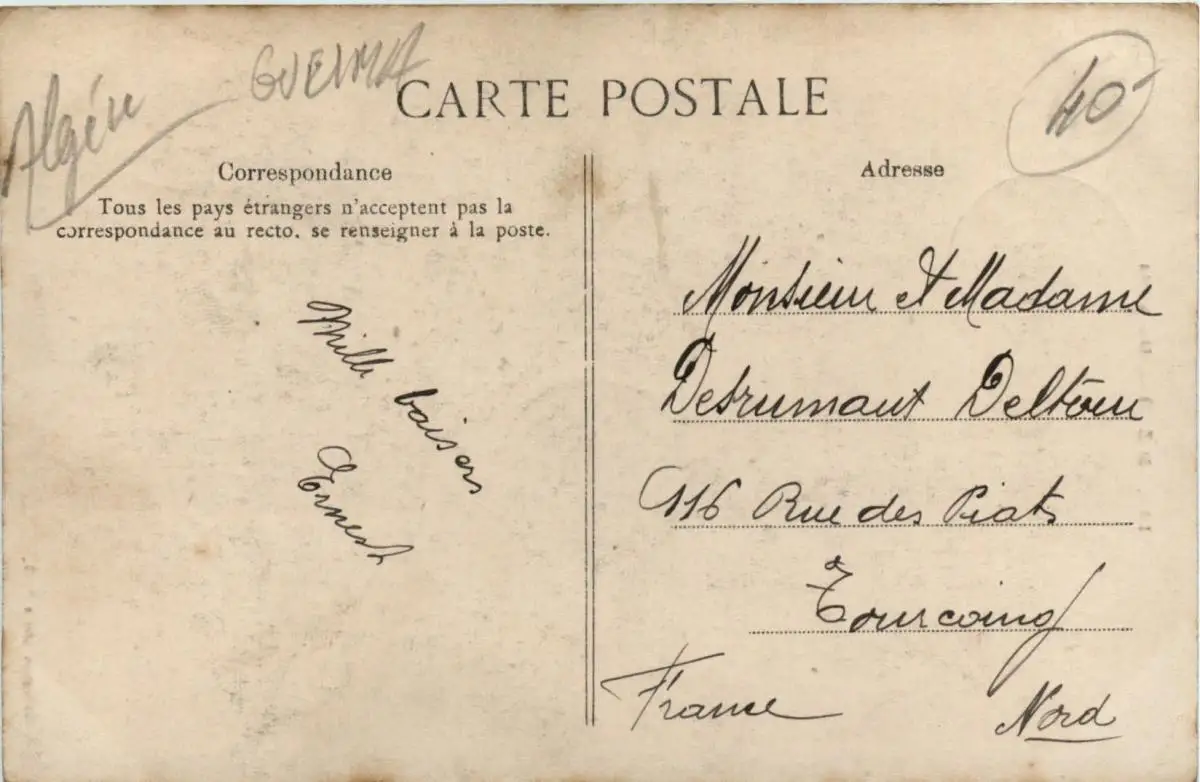 Algérie GUELMA
CARTE POSTALE
40-
Correspondance
Tous les pays étrangers n'acceptent pas la
correspondance au recto, se renseigner à la poste.
Mille baisers
Ernest
Adresse
Monsieur et Madame
Desrumaux Deltour
116 Rue des Piats
Tourcoing
France Nord